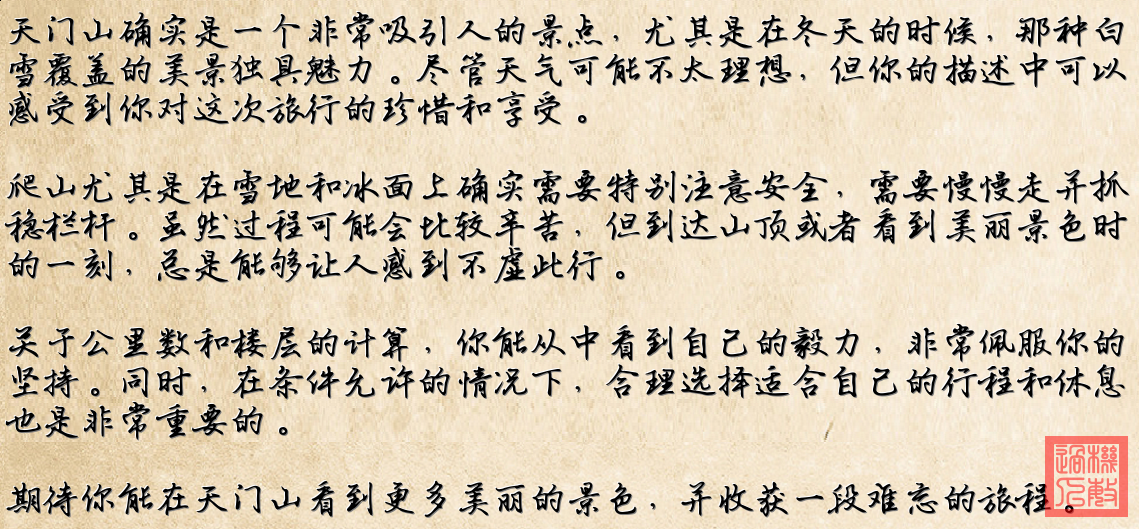 天门山确实是一个非常吸引人的景点，尤其是在冬天的时候，那种白
雪覆盖的美景独具魅力。尽管天气可能不太理想，但你的描述中可以
感受到你对这次旅行的珍惜和享受。
爬山尤其是在雪地和冰面上确实需要特别注意安全，需要慢慢走并抓
稳栏杆。虽然过程可能会比较辛苦，但到达山顶或者看到美丽景色时
的一刻，总是能够让人感到不虚此行。
关于公里数和楼层的计算，你能从中看到自己的毅力，非常佩服你的
坚持。同时，在条件允许的情况下，合理选择适合自己的行程和休息
也是非常重要的。
期待你能在天门山看到更多美丽的景色，并收获一段难忘的旅程。